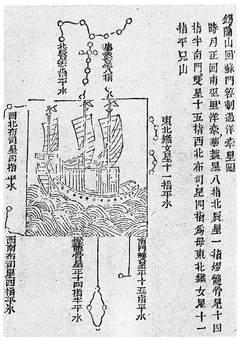 錫蘭山回蘇門答剌過洋牽星圖
時月正回南巫里洋牽華蓋星八指北辰星一指燈籠骨星十四
指半南門雙星十五指西北布司星四指為母東北織女星十一
指平兒山
華蓋星八指平水
北辰星一指平水
東北織女星十一指平水
西北布司星四指平水
南門雙星平十五指平水
燈籠骨星正十四指半平水
西南布司星四指平水